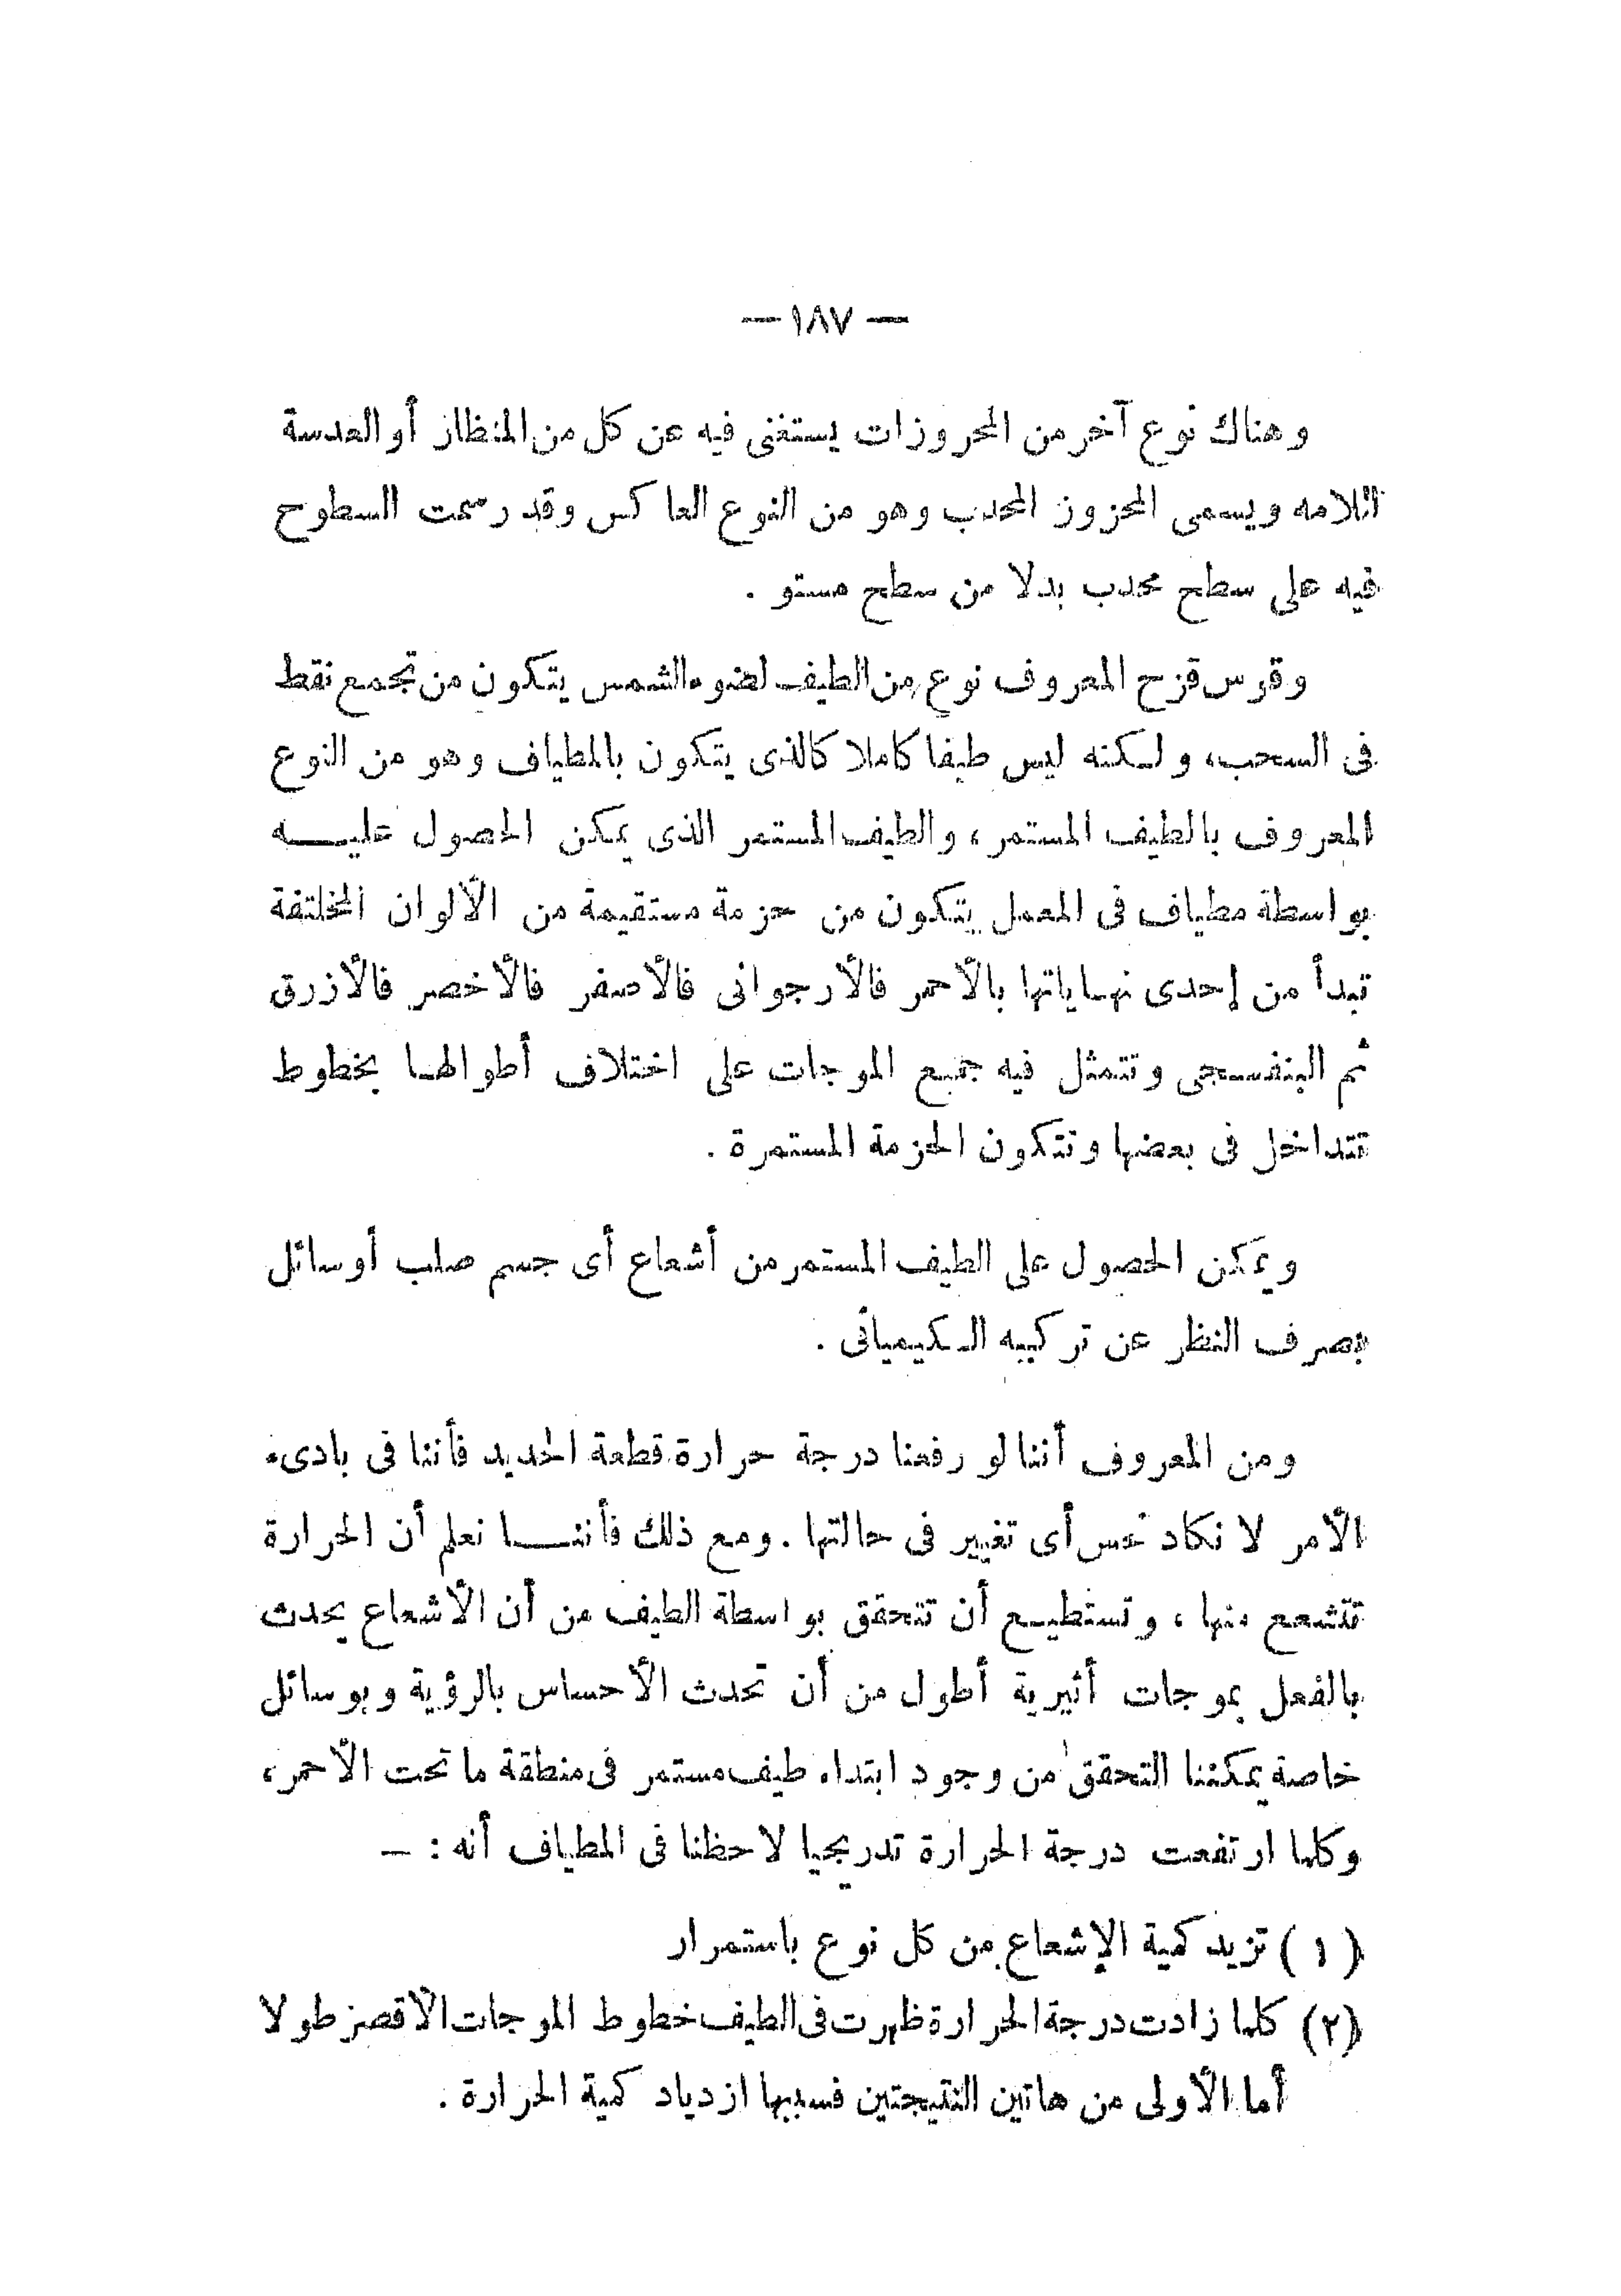 — ١٨٧ —
وهناك نوع آخر من المحروزات يستغنى فيه عن كل من المنظار أو العدسة
اللامه ويسمى المحزوز المحدب وهو من النوع العاكس وقد رسمت السطوح
فيه على سطح محدب بدلا من سطح مستو .
وقوس قزح المعروف نوع من الطيف لضوء الشمس يتكون من تجمع نقط
فى السحب، ولكنه ليس طيفا كاملا كالذى يتكون بالمطياف وهو من النوع
المعروف بالطيف المستمر ، والطيف المستمر الذى يمكن الحصول عليه
بواسطة مطياف فى المعمل يتكون من حزمة مستقيمة من الألوان المختلفة
تبدأ من إحدى نهاياتها بالأحمر فالأرجوانى فالأصفر فالأخضر فالأزرق
ثم البنفسجى وتتمثل فيه جميع الموجات على اختلاف أطوالها بخطوط
تتداخل فى بعضها وتتكون الحزمة المستمرة .
ويمكن الحصول على الطيف المستمر من أشعاع أى جسم صلب أو سائل
بصرف النظر عن تركيبه الكيميائى .
ومن المعروف أننا لو رفعنا درجة حرارة قطعة الحديد فأننا فى بادىء
الأمر لا نكاد نحس أى تغيير فى حالتها . ومع ذلك فأننا نعلم أن الحرارة
تتشعع منها ، وتستطيع أن تتحقق بواسطة الطيف من أن الأشعاع يحدث
بالفعل بموجات أثيرية أطول من أن تحدث الأحساس بالرؤية وبوسائل
خاصة يمكننا التحقق من وجود ابتداء طيف مستمر فى منطقة ما تحت الأحمر،
وكلما ارتفعت درجة الحرارة تدريجيا لاحظنا فى المطياف أنه : —
( ١ ) تزيد كمية الإشعاع من كل نوع باستمرار
(٢) كلما زادت درجة الحرارة ظهرت فى الطيف خطوط الموجات الأقصر طولا
أما الأولى من هاتين النتيجتين فسببها ازدياد كمية الحرارة .